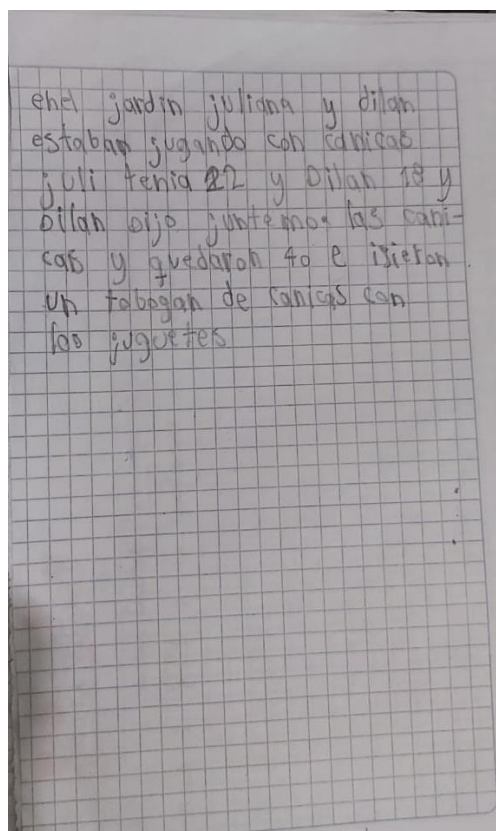 enel jardin juliana y dilan
estaban jugando con canicas
juli tenia 22 y Dilan 18 y
Dilan Dijo juntemos las cani-
cas y quedaron 40 e isieron
un tobogan de canicas con
los juguetes